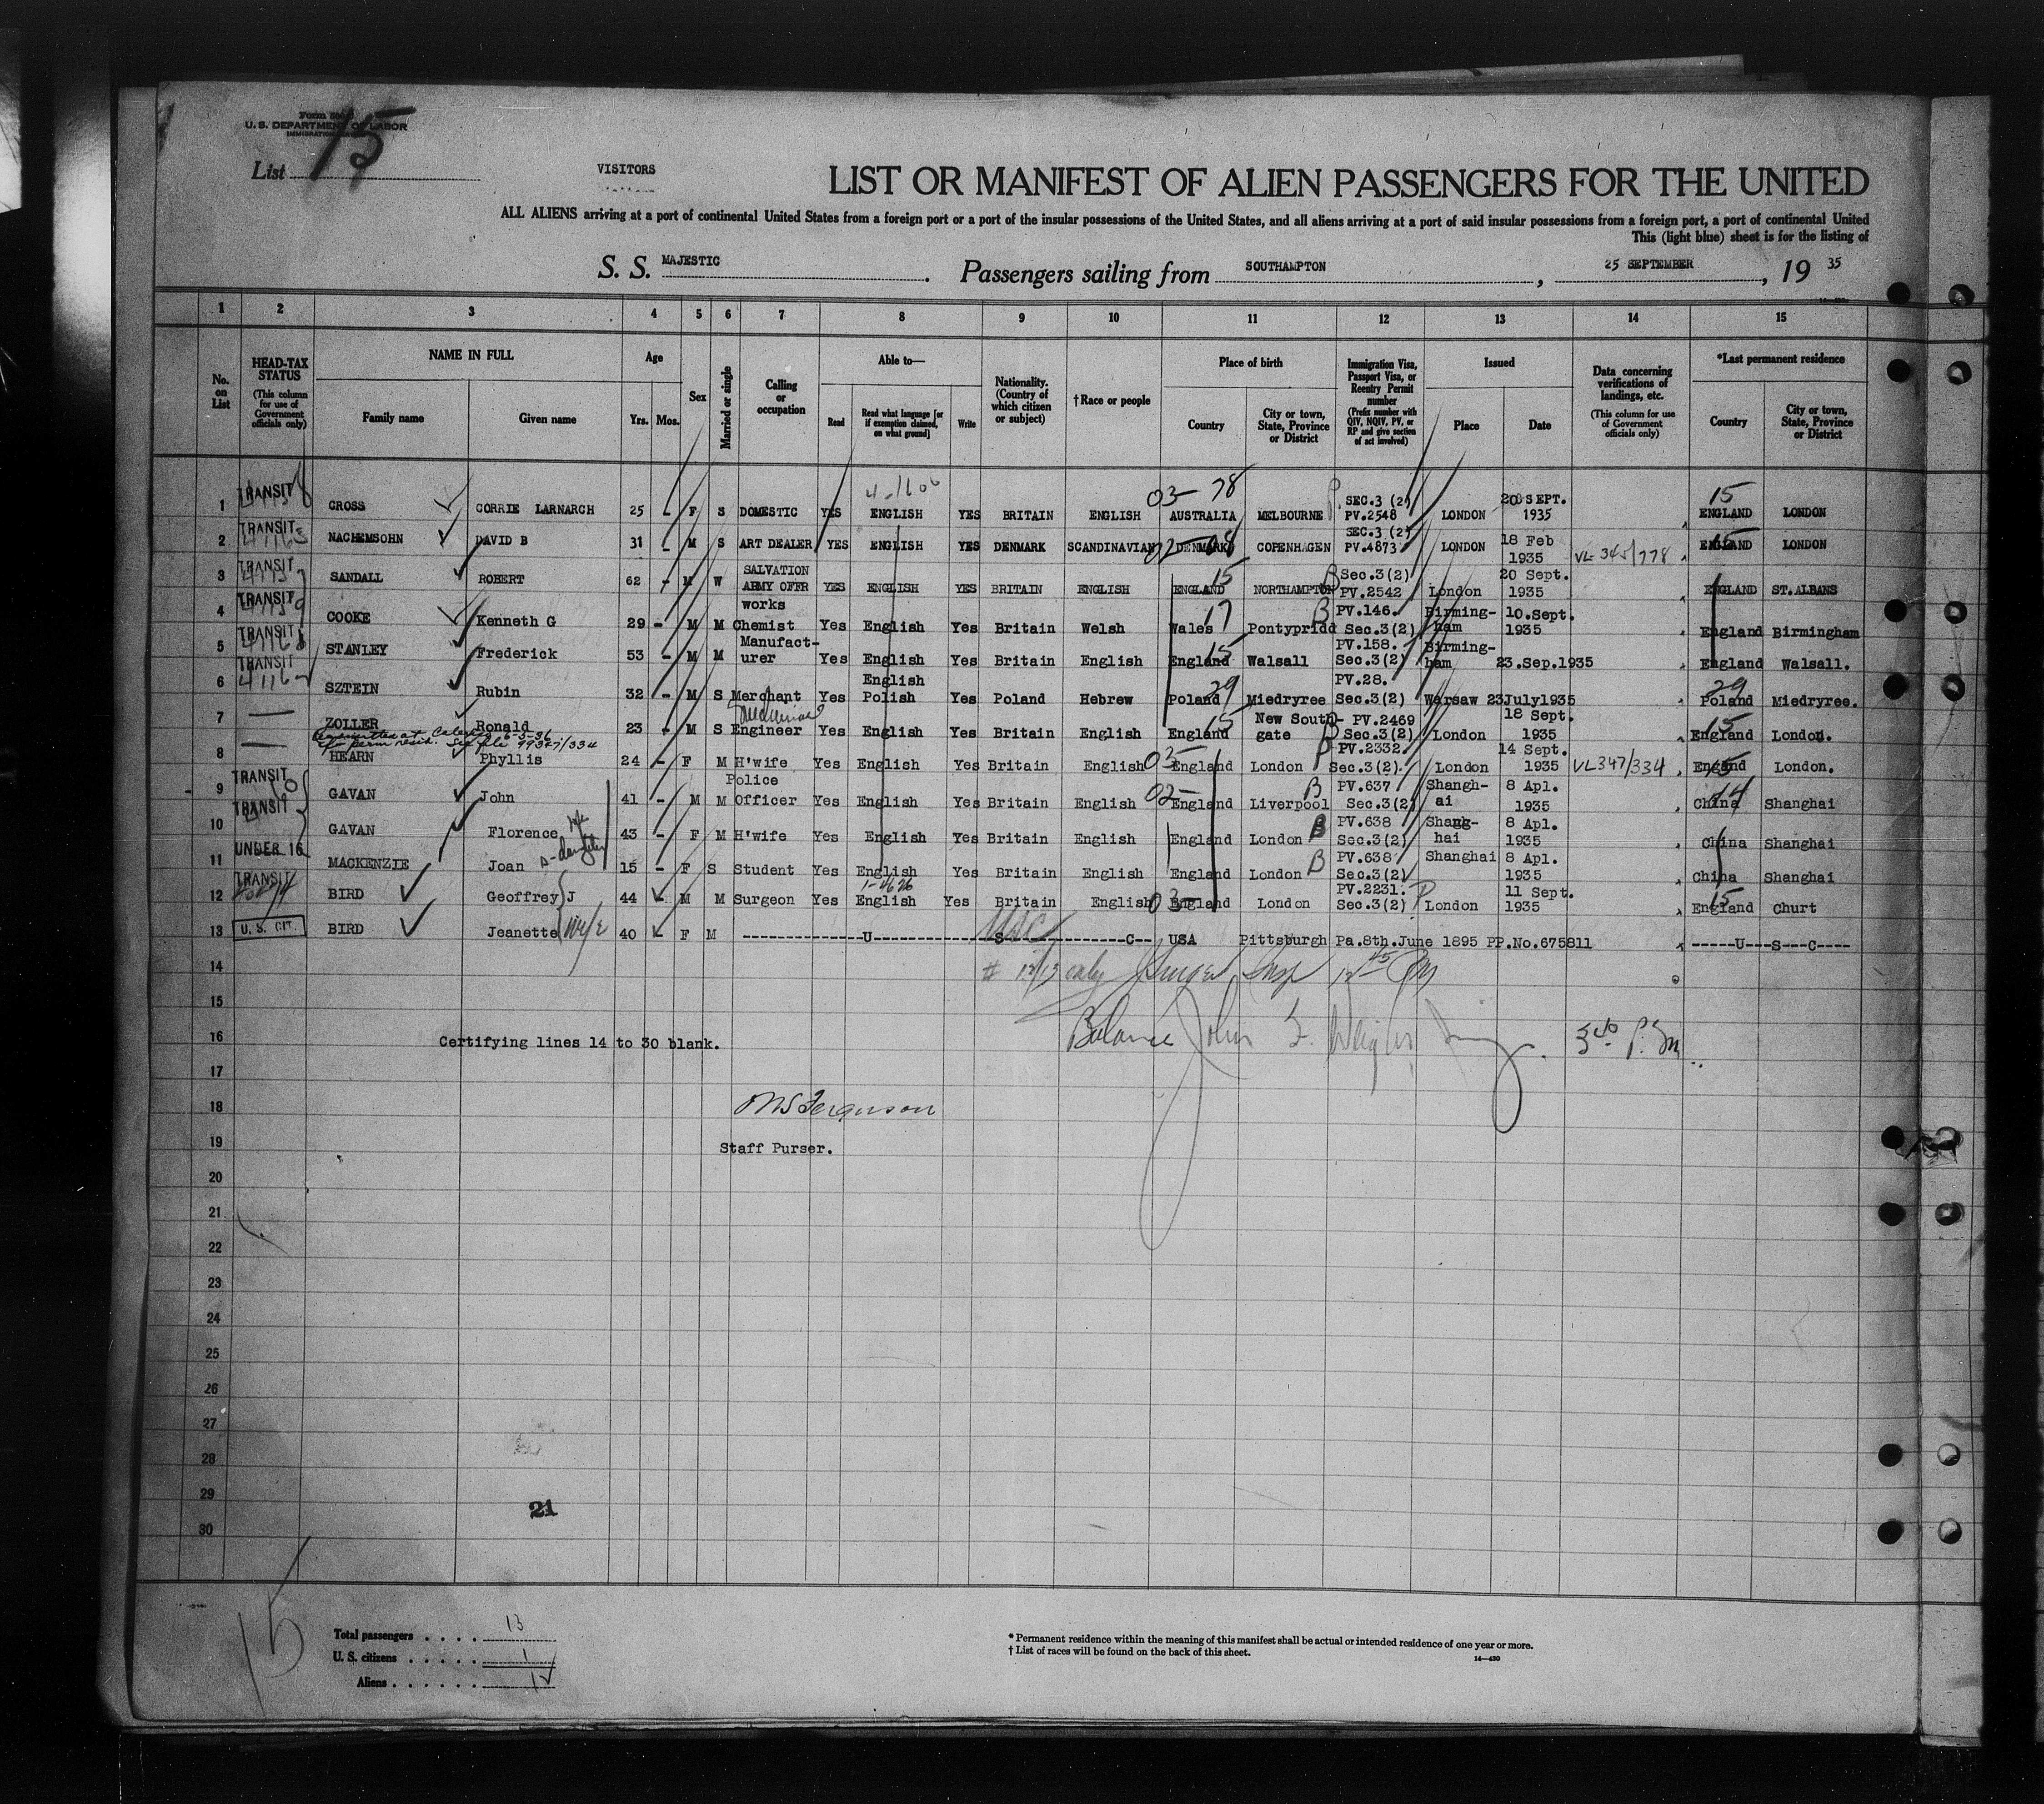 Form 500
U. S. DEPARTMENT OF LABOR
IMMIGRATION
List 15
VISITORS
LIST OR MANIFEST OF ALIEN PASSENGERS FOR THE UNITED
ALL ALIENS arriving at a port of continental United States from a foreign port or a port of the insular possessions of the United States, and all aliens arriving at a port of said insular possessions from a foreign port, a port of continental United
This (light blue) sheet is for the listing of
S. S. MAJESTIC . Passengers sailing from SOUTHAMPTON , 25 SEPTEMBER , 19 35
1 2 3 4 5 6 7 8 9 10 11 12 13 14 15
No. on List
HEAD-TAX STATUS (This column for use of Government officials only)
NAME IN FULL Family name Given name
Age Yrs. Mos.
Sex
Married or single
Calling or occupation
Able to— Read Read what language [or if exemption claimed, on what ground] Write
Nationality. (Country of which citizen or subject)
†Race or people
Place of birth Country City or town, State, Province or District
Immigration Visa, Passport Visa, or Reentry Permit number (Prefix number with QIV, NQIV, PV, or RP and give section of act involved)
Issued Place Date
Data concerning verifications of landings, etc. (This column for use of Government officials only)
*Last permanent residence Country City or town, State, Province or District
1 TRANSIT CROSS CORRIE LARNARCH 25 - F S DOMESTIC YES ENGLISH YES BRITAIN ENGLISH 03- 78 AUSTRALIA MELBOURNE SEC.3 (2) PV.2548 LONDON 20 SEPT. 1935 15 ENGLAND LONDON
2 TRANSIT NACHEMSOHN DAVID B 31 - M S ART DEALER YES ENGLISH YES DENMARK SCANDINAVIAN DENMARK COPENHAGEN SEC.3 (2) PV.4873 LONDON 18 Feb 1935 VL 345/778 15 ENGLAND LONDON
3 TRANSIT SANDALL ROBERT 62 - M W SALVATION ARMY OFFR YES ENGLISH YES BRITAIN ENGLISH 15 ENGLAND NORTHAMPTON B Sec.3(2) PV.2542 London 20 Sept. 1935 ENGLAND ST.ALBANS
4 TRANSIT COOKE Kenneth G 29 - M M works Chemist Yes English Yes Britain Welsh 17 Wales Pontypridd B PV.146. Sec.3(2) Birming-ham 10.Sept. 1935 England Birmingham
5 TRANSIT STANLEY Frederick 53 - M M Manufact-urer Yes English Yes Britain English 15 England Walsall PV.158. Sec.3(2) Birming-ham 23.Sep.1935 England Walsall.
6 TRANSIT SZTEIN Rubin 32 - M S Merchant Yes English Polish Yes Poland Hebrew 29 Poland Miedryree PV.28. Sec.3(2) Warsaw 23July1935 29 Poland Miedryree.
7 — ZOLLER Ronald 23 - M S Engineer Yes English Yes Britain English 15 England New South-gate B PV.2469 Sec.3(2) London 18 Sept. 1935 15 England London.
for perm resid. See file 99327/334
8 — HEARN Phyllis 24 - F M H'wife Yes English Yes Britain English 03- England London PV.2332. Sec.3(2). London 14 Sept. 1935 VL347/334 15 England London.
9 TRANSIT GAVAN John 41 - M M Police Officer Yes English Yes Britain English 02- England Liverpool B PV.637 Sec.3(2) Shangh-ai 8 Apl. 1935 14 China Shanghai
10 TRANSIT GAVAN Florence wife 43 - F M H'wife Yes English Yes Britain English England London B PV.638 Sec.3(2) Shang-hai 8 Apl. 1935 China Shanghai
11 UNDER 16 MACKENZIE Joan s-daughter 15 - F S Student Yes English Yes Britain English England London B PV.638 Sec.3(2) Shanghai 8 Apl. 1935 China Shanghai
12 TRANSIT BIRD Geoffrey J 44 M M Surgeon Yes English Yes Britain English 03- England London PV.2231. Sec.3(2) P London 11 Sept. 1935 15 England Churt
13 U. S. CIT. BIRD Jeanette wife 40 F M ------U------S------C-- USA Pittsburgh Pa.8th.June 1895 PP.No.675811 -----U---S---C----
14 # 12/13 only Insp 12 45 PM
15
16 Certifying lines 14 to 30 blank. Balance John 3 40 P.M.
17
18 Ferguson
19 Staff Purser.
20
21
22
23
24
25
26
27
28
29 21
30
15
Total passengers . . . . 13
U. S. citizens . . . . . 1
Aliens . . . . . . 12
* Permanent residence within the meaning of this manifest shall be actual or intended residence of one year or more.
† List of races will be found on the back of this sheet.
14—430